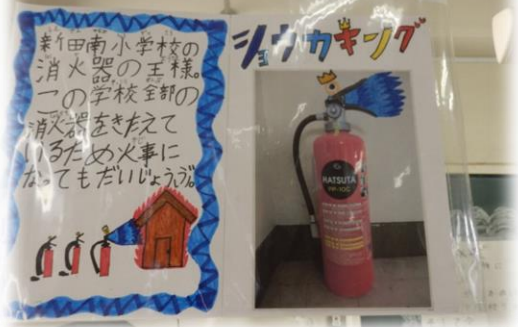 新田南小学校の
消火器の王様。
この学校全部の
消火器をきたえて
いるため火事に
なってもだいじょうぶ。
ショウカキング
HATSUTA
PP-10C